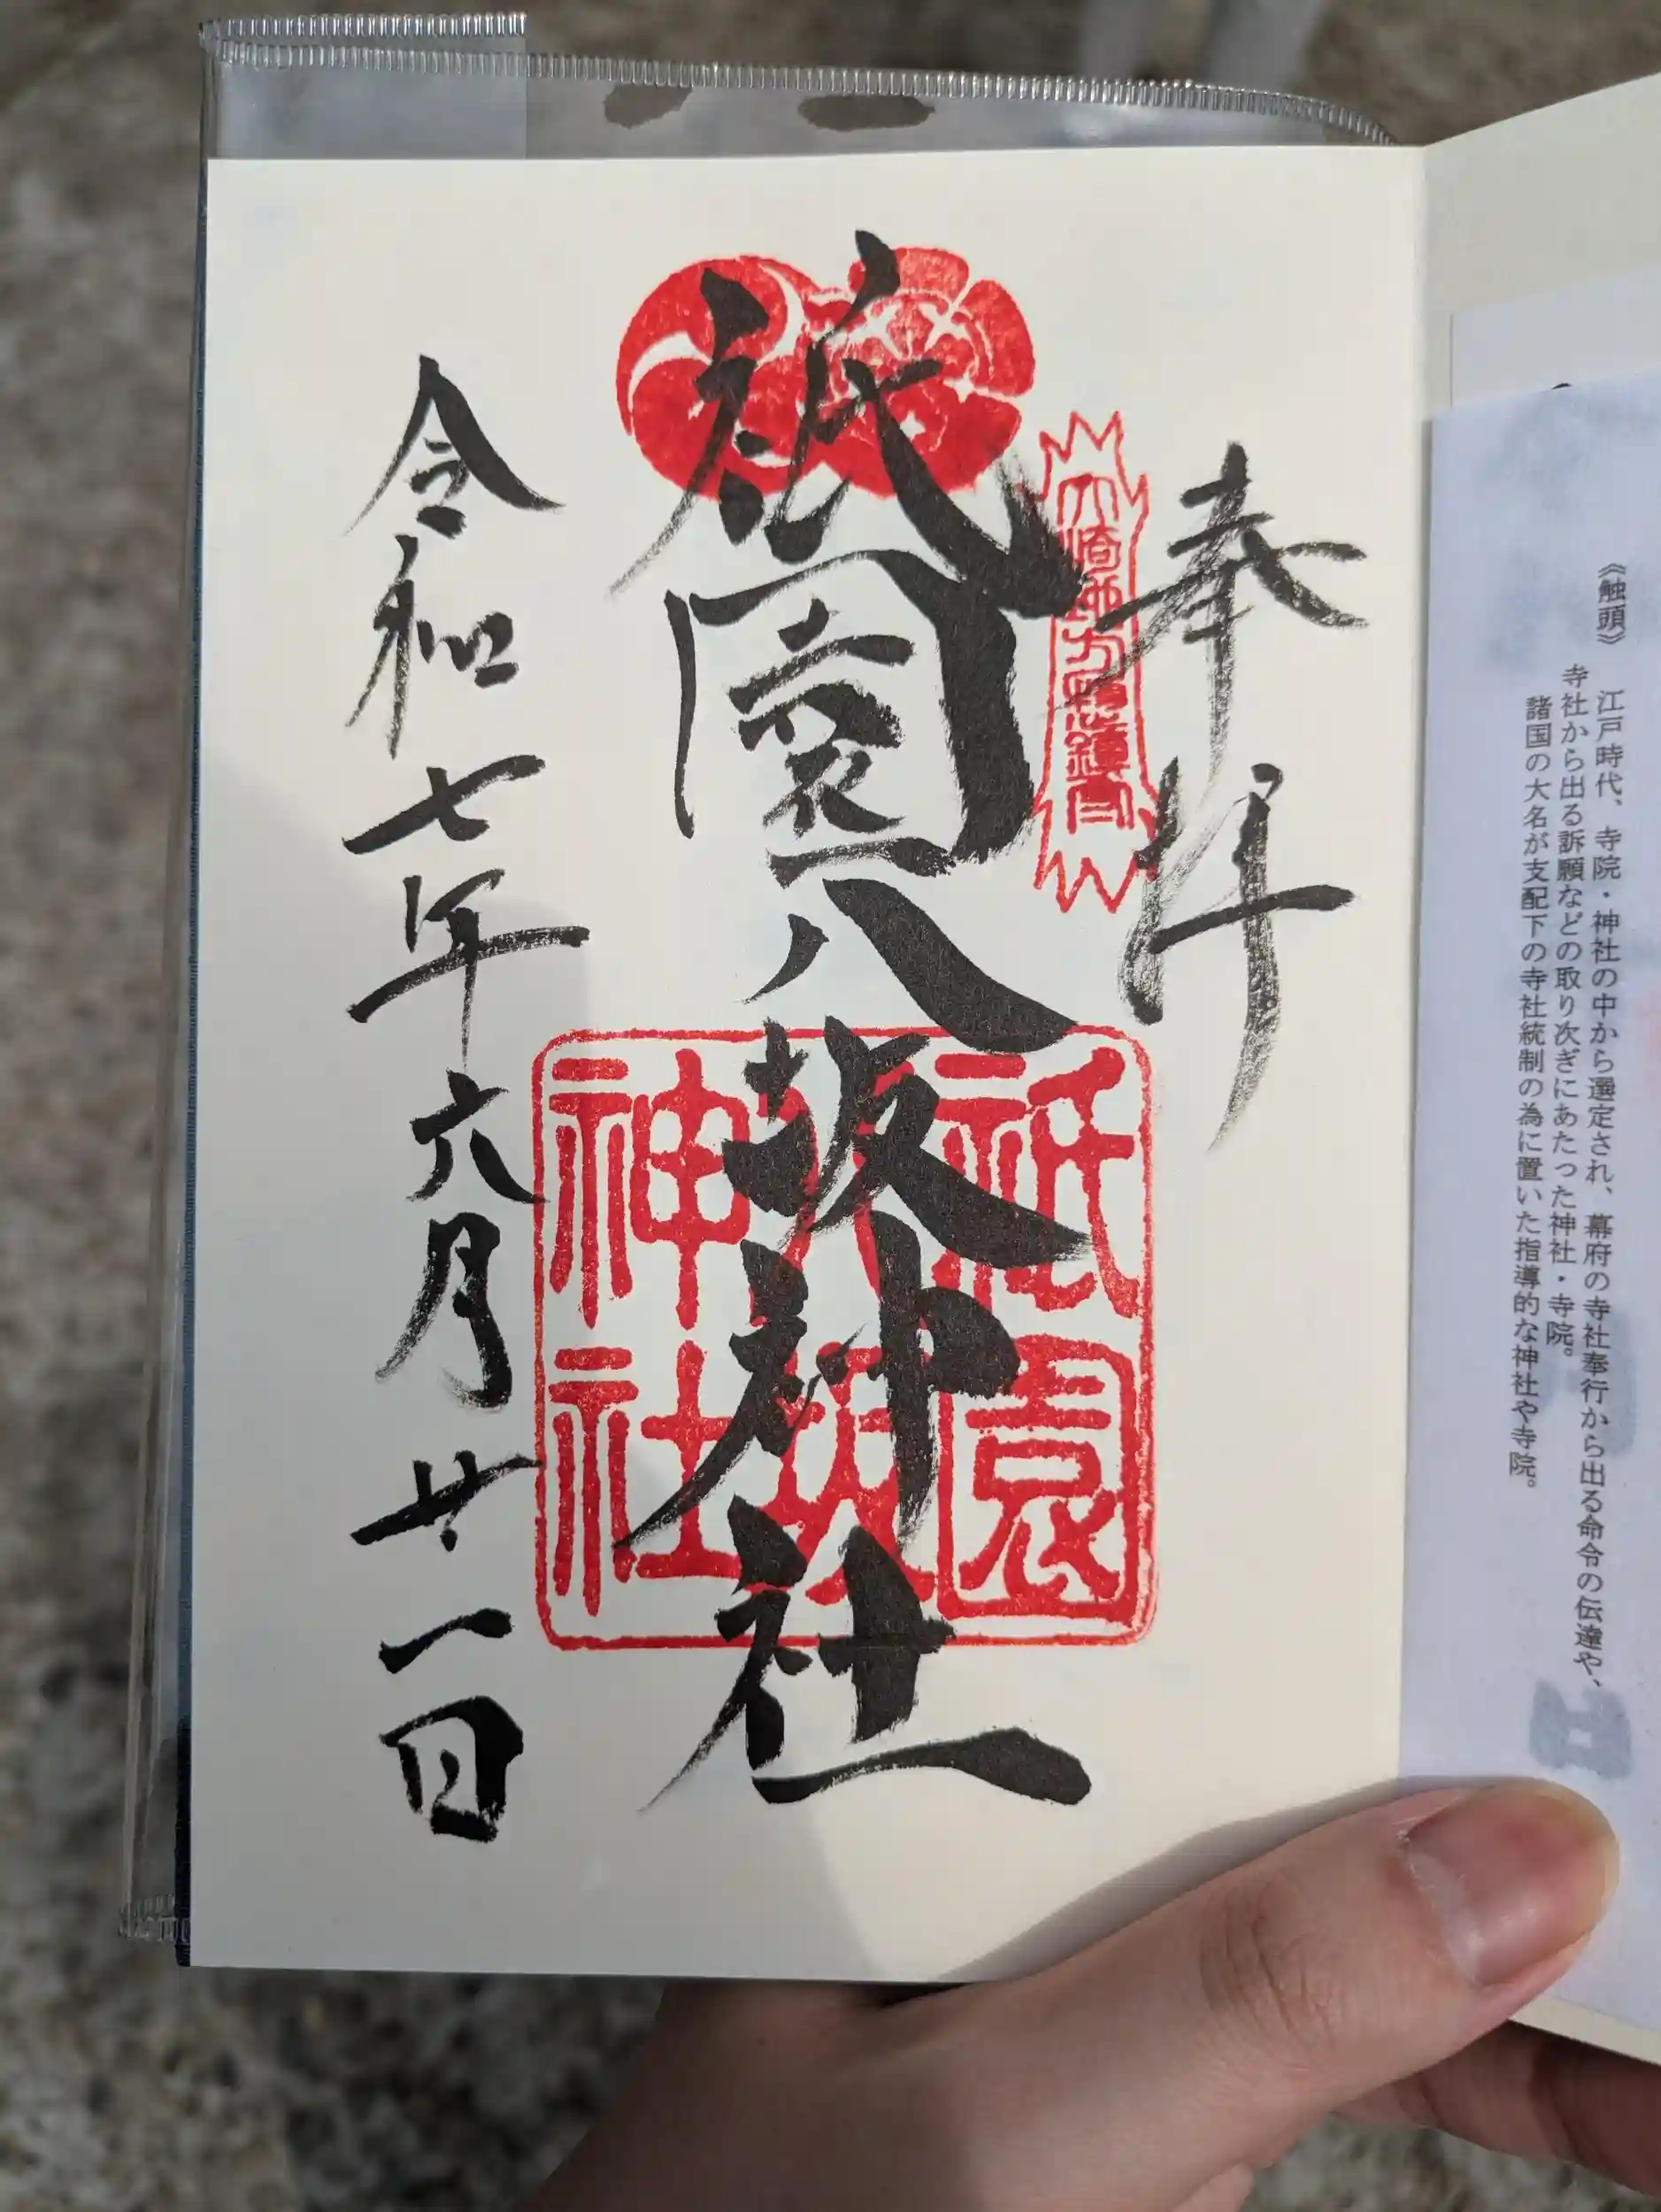 《触頭》 江戸時代、寺院・神社の中から選定され、幕府の寺社奉行から出る命令の伝達や、
寺社から出る訴願などの取り次ぎにあたった神社・寺院。
諸国の大名が支配下の寺社統制の為に置いた指導的な神社や寺院。
奉拝
大崎地方総鎮守
祇園八坂神社
祇園
八坂
神社
令和七年六月廿一日